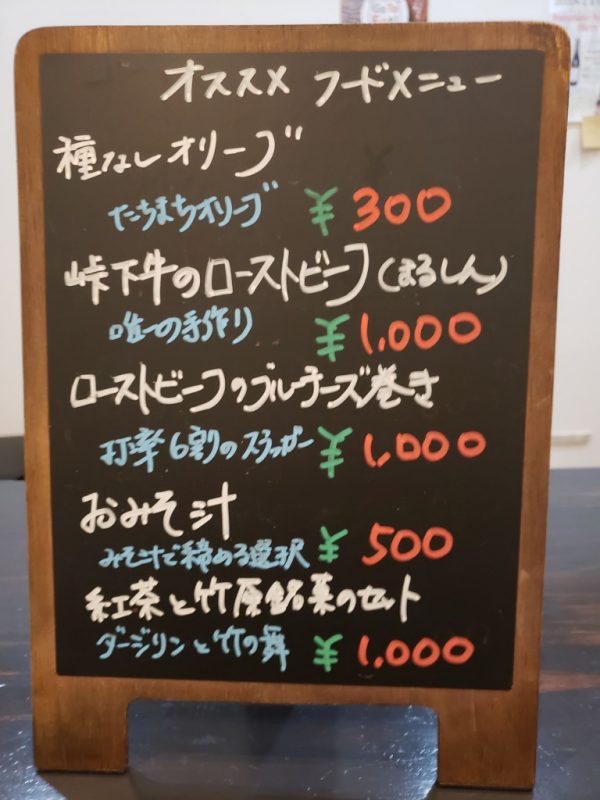 オススメ フードメニュー
種なしオリーブ
たちまちオリーブ ¥300
峠下牛のローストビーフ(まるしん)
唯一の手作り ¥1,000
ローストビーフのブルーチーズ巻き
打率6割のスラッガー ¥1,000
おみそ汁
みそ汁で締める選択 ¥500
紅茶と竹原銘菓のセット
ダージリンと竹の舞 ¥1,000